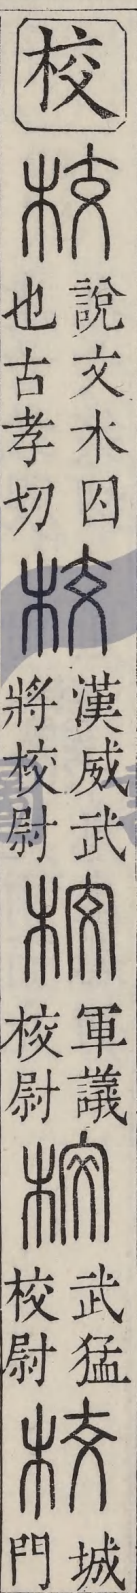 校
校 說文木囚
也古孝切
校 漢威武
將校尉
校 軍議
校尉
校 武猛
校尉
校 城
門